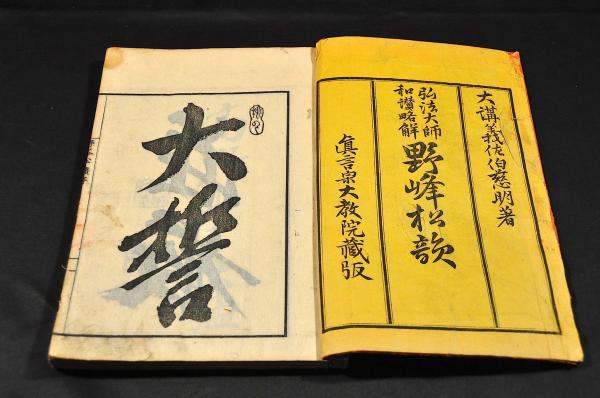 大講義佐伯慈明著
弘法大師
和讃略解
野峰松歌
眞言宗大教院藏版
大誓